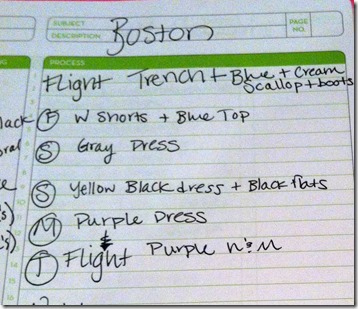 SUBJECT
DESCRIPTION
Boston
PAGE NO.
NG
PROCESS
Flight Trench + Blue + Cream
Scallop + boots
F W Shorts + Blue Top
S Gray Dress
S Yellow Black dress + Black flats
M Purple Dress
&
T Flight Purple